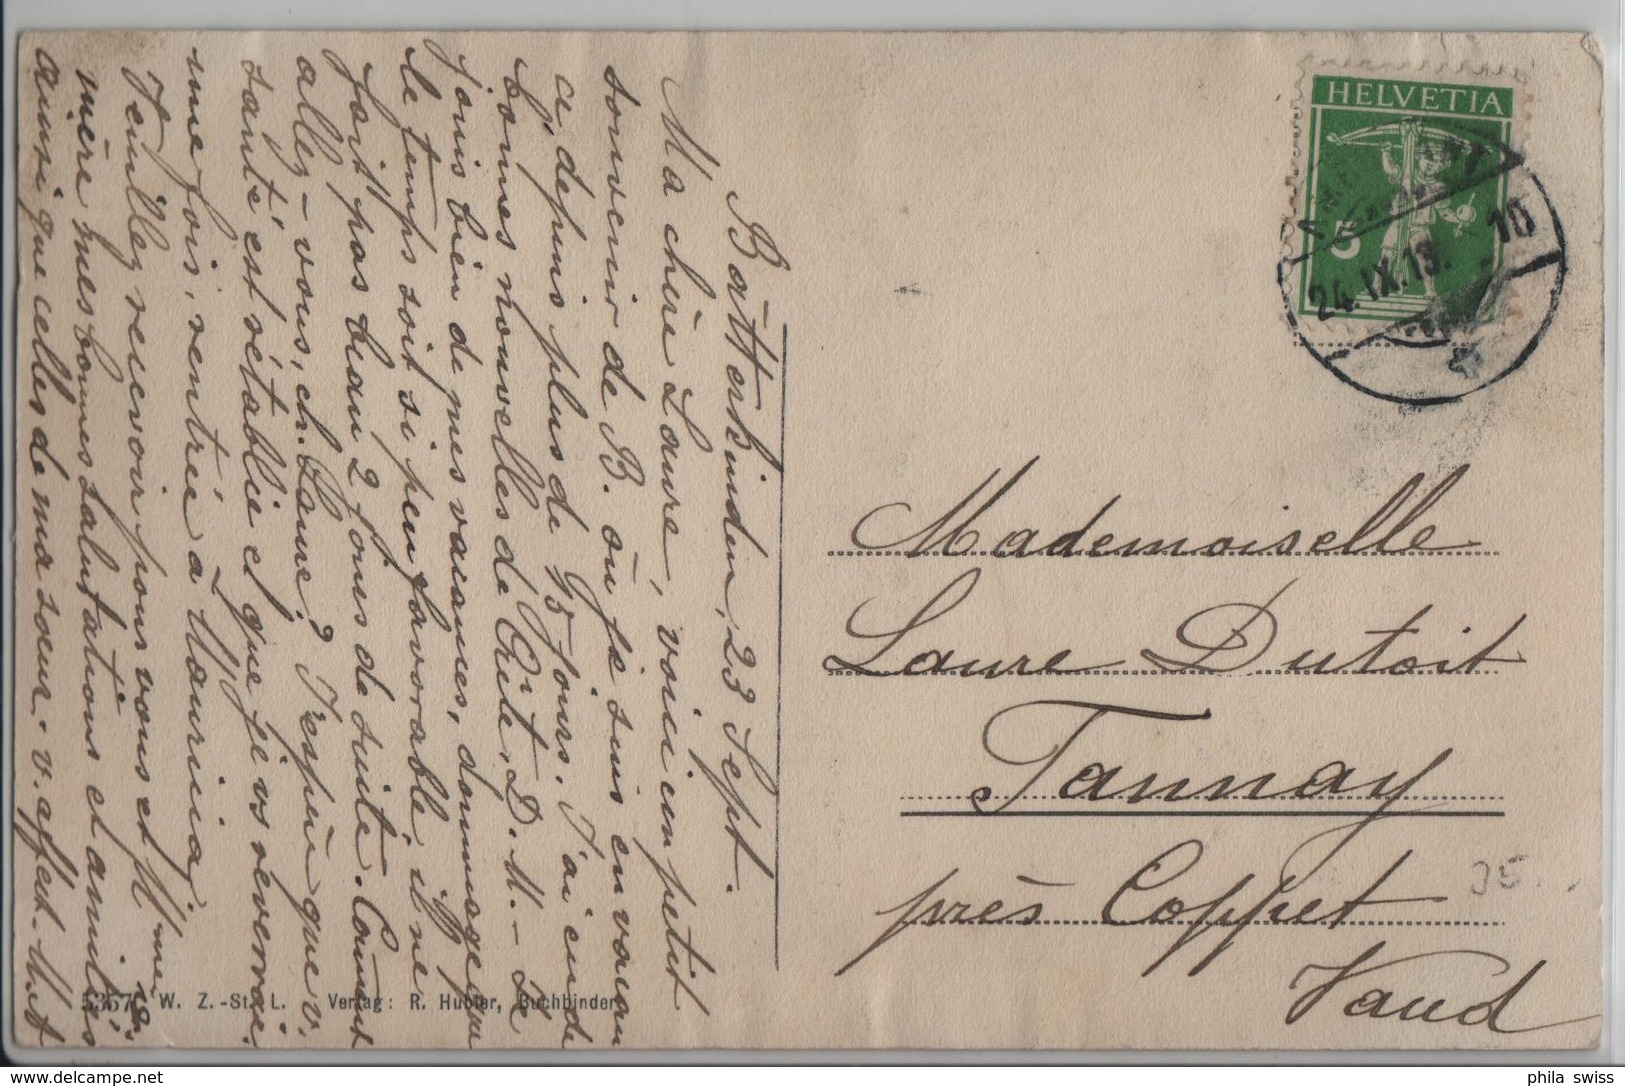 Bätterkinden, 23 Sept.
Ma chère Laure, voici un petit
souvenir de B. où je suis en vacan
ces depuis plus de 15 jours. J'ai eu de
bonnes nouvelles de D. M. - Je
jouis bien de mes vacances, dommage que
le temps soit si peu favorable, il ne
fait pas beau 2 jours de suite. Comment
allez-vous, ch. Laure? J'espère que v.
santé est rétablie et que je vs reverrai
une fois, rentrée à Mauricia.
Veuillez recevoir pour vous et Mme v.
mère mes bonnes salutations et amitiés
ainsi que celles de ma soeur. v. affect.
HELVETIA
5
24.IX.13. 10
Mademoiselle
Laure Dutoit
Tannay
près Coppet
Vaud
W. Z.-St. L. Verlag: R. Hubler, Buchbinder
phila swiss